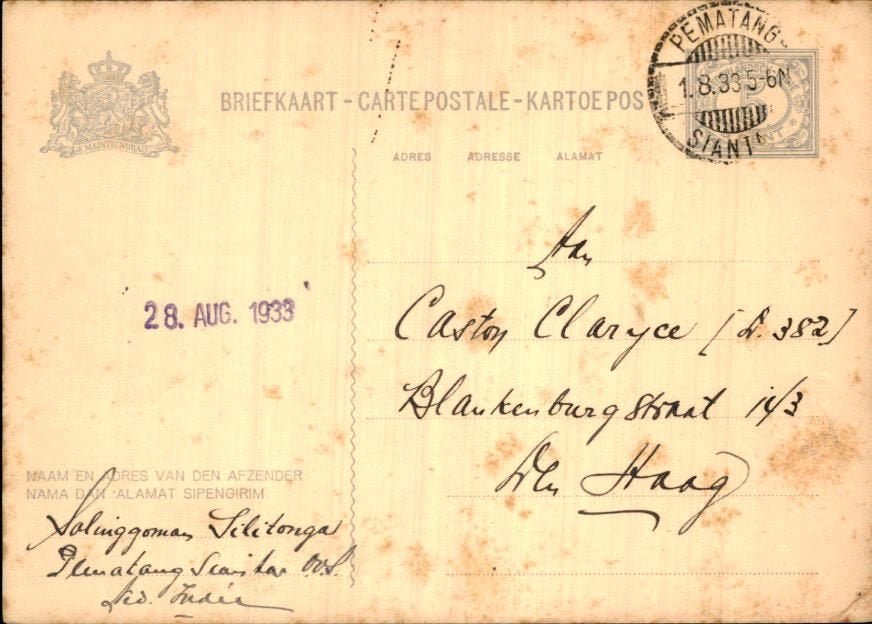 JE MAINTIENDRAI
BRIEFKAART - CARTE POSTALE - KARTOE POS
PEMATANG-
1.8.33 5-6N
SIANT
CENT
ADRES ADRESSE ALAMAT
28. AUG. 1933
Aan
Caston Claryce [D. 382]
Blankenburgstraat
Den Haag
NAAM EN ADRES VAN DEN AFZENDER
NAMA DAN ALAMAT SIPENGIRIM
Salinggoman Silitonga
Pematang Siantar
Ned. Indië